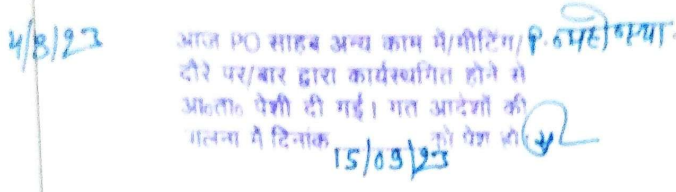 4/8/23 आज PO साहब अन्य काम में/मीटिंग/
दौरे पर/बार द्वारा कार्यस्थगित होने से
आ०ता० पेशी दी गई। गत आदेशों की
पालना में दिनांक 15/09/23 को पेश हो